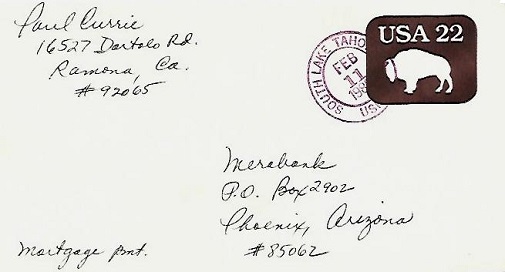 Paul Currie
16527 Dartolo Rd.
Ramona, Ca.
#92065
USA 22
SOUTH LAKE TAHO
FEB
11
198
US
Merabank
P.O. Box 2902
Phoenix, Arizona
#85062
Mortgage pmt.